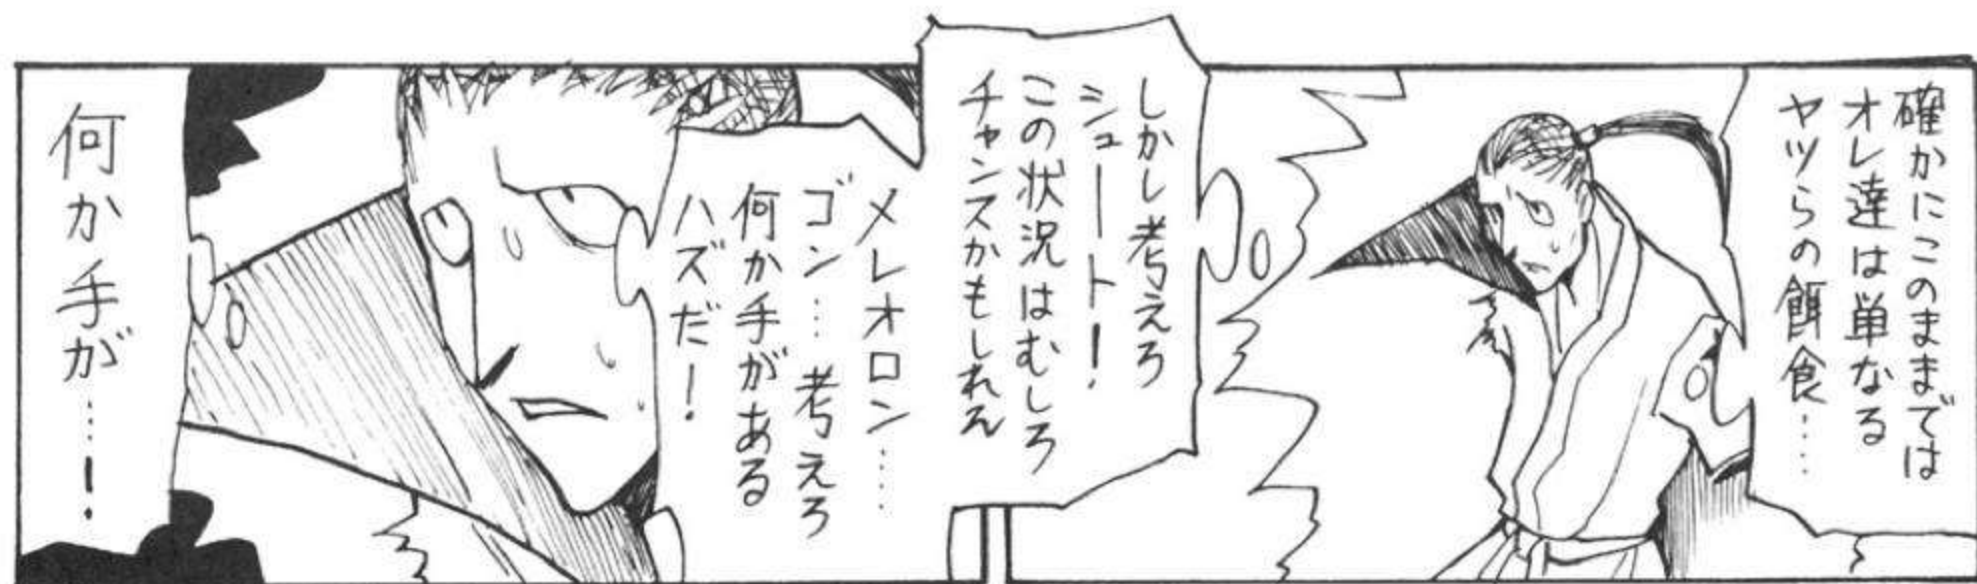 確かにこのままでは
オレ達は単なる
ヤツらの餌食……
しかし考えろ
シュート!
この状況はむしろ
チャンスかもしれん
メレオロン……
ゴン…考えろ
何か手がある
ハズだ!
何か手が……!